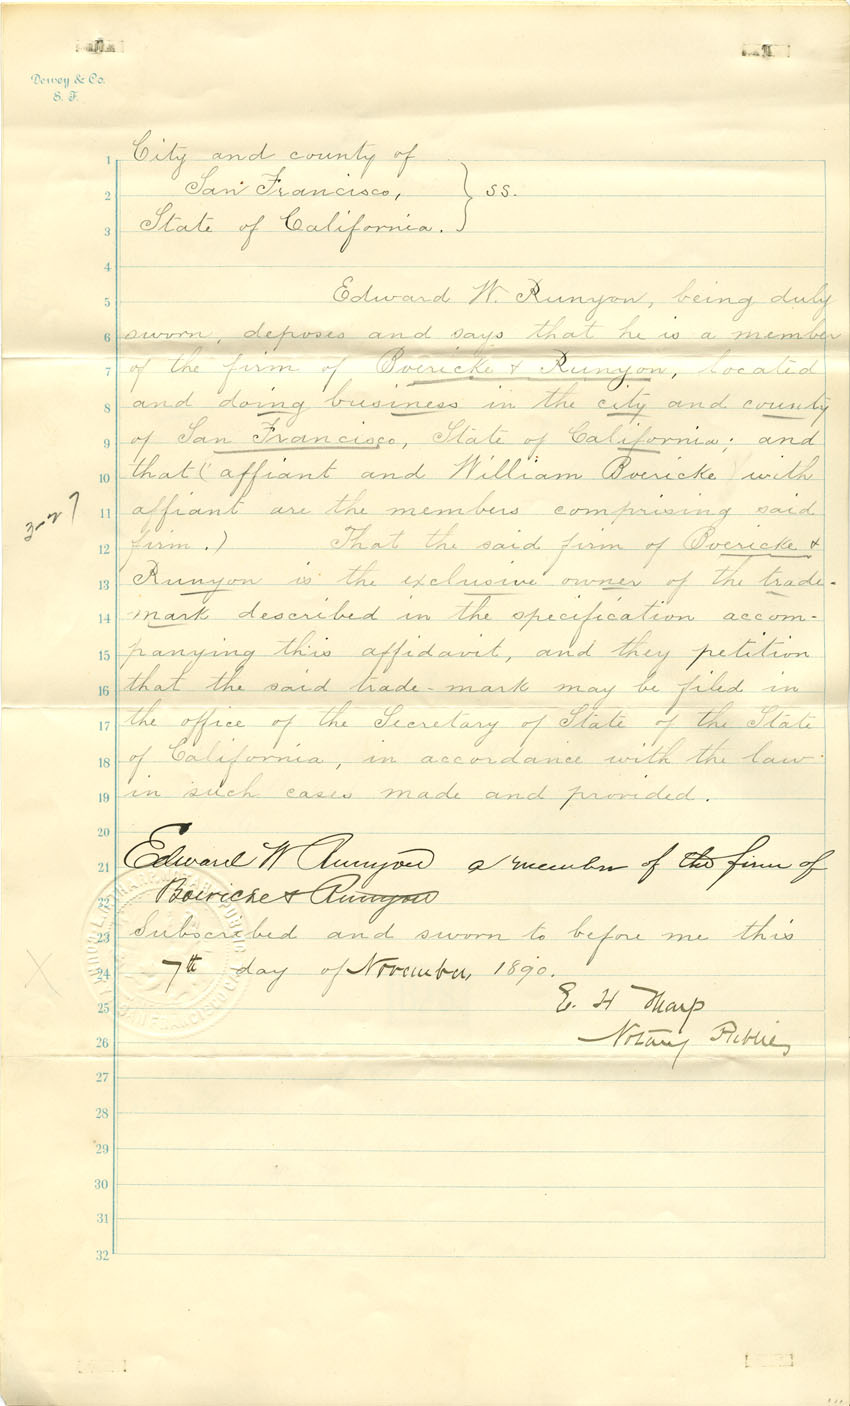 Dewey & Co.
S. F.
1 City and county of
2 San Francisco, } ss.
3 State of California.
4
5 Edward W. Runyon, being duly
6 sworn, deposes and says that he is a member
7 of the firm of Boericke & Runyon, located
8 and doing business in the city and county
9 of San Francisco, State of California; and
10 that (affiant and William Boericke) with
11 affiant are the members comprising said
12 firm.) That the said firm of Boericke &
13 Runyon is the exclusive owner of the trade-
14 mark described in the specification accom-
15 panying this affidavit, and they petition
16 that the said trade-mark may be filed in
17 the office of the Secretary of State of the State
18 of California, in accordance with the law
19 in such cases made and provided.
20
21 Edward W Runyon a member of the firm of
22 Boericke & Runyon
23 Subscribed and sworn to before me this
24 7th day of November, 1890.
25 E. H. Tharp
26 Notary Public
27
28
29
30
31
32